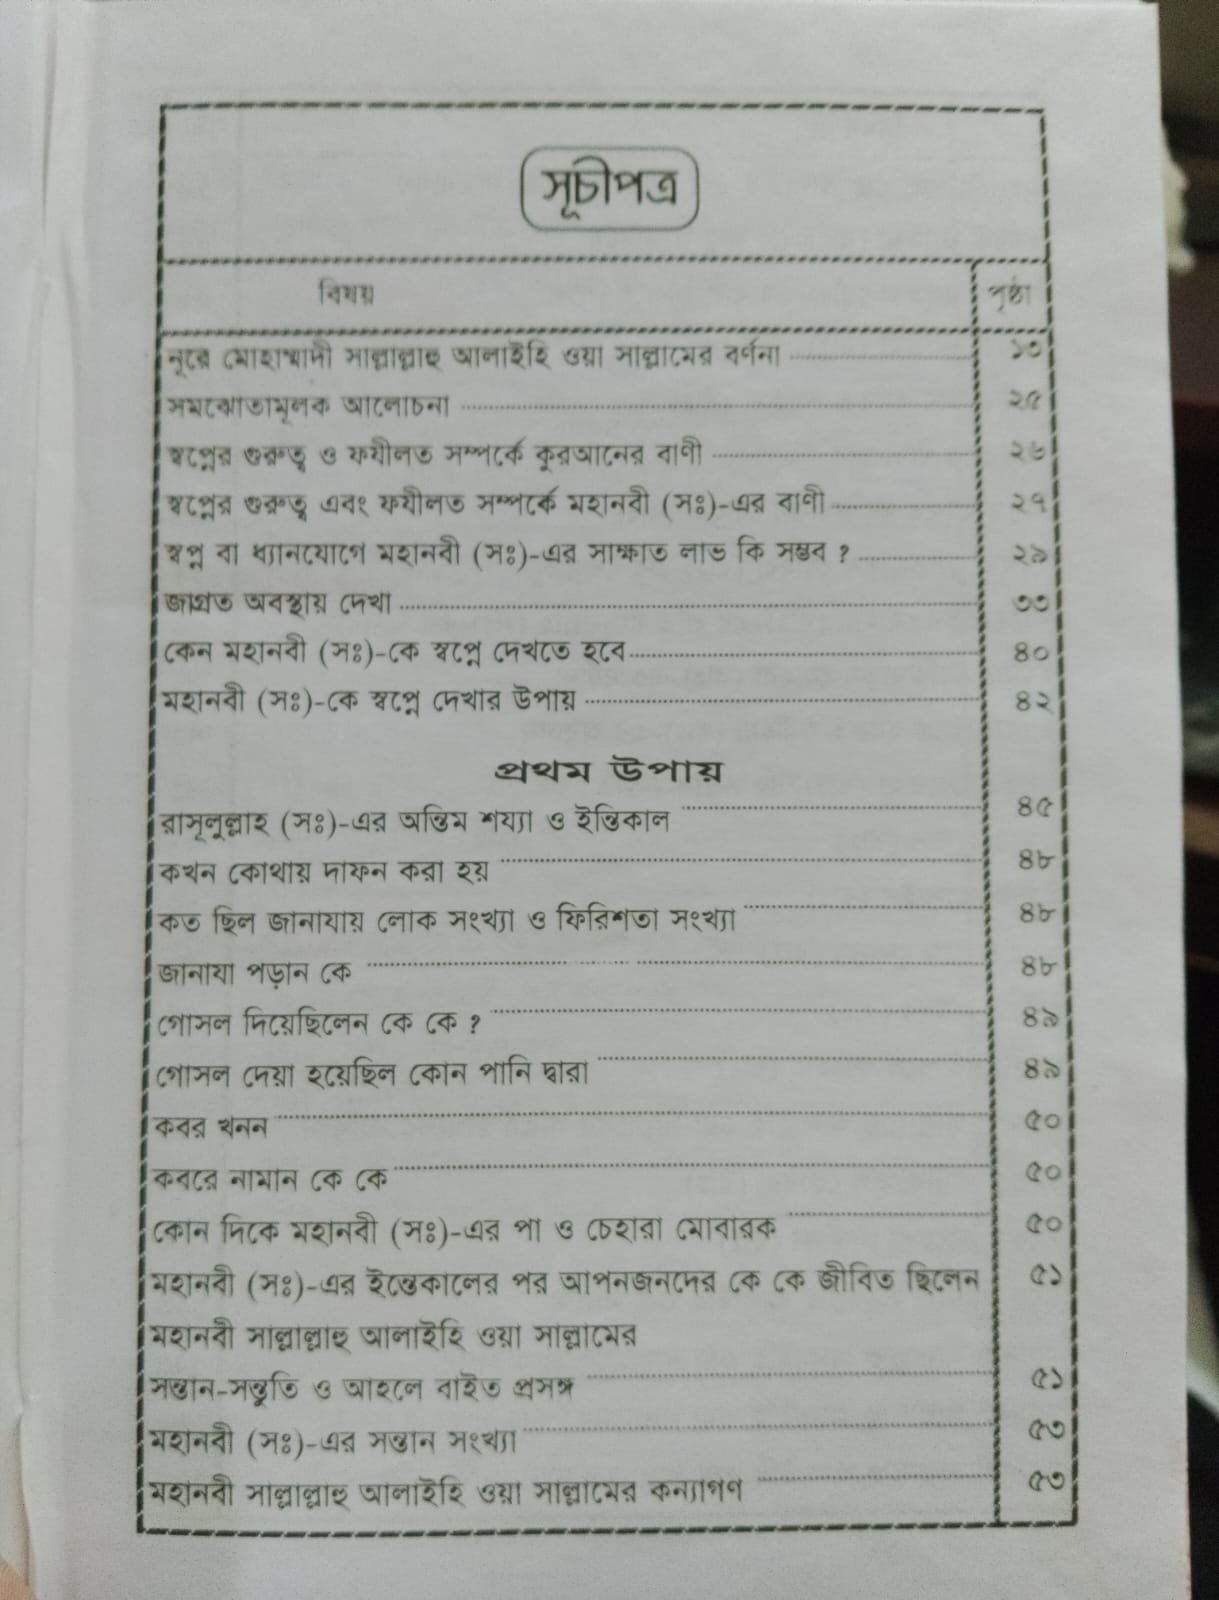 সূচীপত্র
বিষয় পৃষ্ঠা
নূরে মোহাম্মাদী সাল্লাল্লাহু আলাইহি ওয়া সাল্লামের বর্ণনা ১৩
সমঝোতামূলক আলোচনা ২৫
স্বপ্নের গুরুত্ব ও ফযীলত সম্পর্কে কুরআনের বাণী ২৬
স্বপ্নের গুরুত্ব এবং ফযীলত সম্পর্কে মহানবী (সঃ)-এর বাণী ২৭
স্বপ্ন বা ধ্যানযোগে মহানবী (সঃ)-এর সাক্ষাত লাভ কি সম্ভব ? ২৯
জাগ্রত অবস্থায় দেখা ৩৩
কেন মহানবী (সঃ)-কে স্বপ্নে দেখতে হবে ৪০
মহানবী (সঃ)-কে স্বপ্নে দেখার উপায় ৪২
প্রথম উপায়
রাসূলুল্লাহ (সঃ)-এর অন্তিম শয্যা ও ইন্তিকাল ৪৫
কখন কোথায় দাফন করা হয় ৪৮
কত ছিল জানাযায় লোক সংখ্যা ও ফিরিশতা সংখ্যা ৪৮
জানাযা পড়ান কে ৪৮
গোসল দিয়েছিলেন কে কে ? ৪৯
গোসল দেয়া হয়েছিল কোন পানি দ্বারা ৪৯
কবর খনন ৫০
কবরে নামান কে কে ৫০
কোন দিকে মহানবী (সঃ)-এর পা ও চেহারা মোবারক ৫০
মহানবী (সঃ)-এর ইন্তেকালের পর আপনজনদের কে কে জীবিত ছিলেন ৫১
মহানবী সাল্লাল্লাহু আলাইহি ওয়া সাল্লামের
সন্তান-সন্তুতি ও আহলে বাইত প্রসঙ্গ ৫১
মহানবী (সঃ)-এর সন্তান সংখ্যা ৫৩
মহানবী সাল্লাল্লাহু আলাইহি ওয়া সাল্লামের কন্যাগণ ৫৩